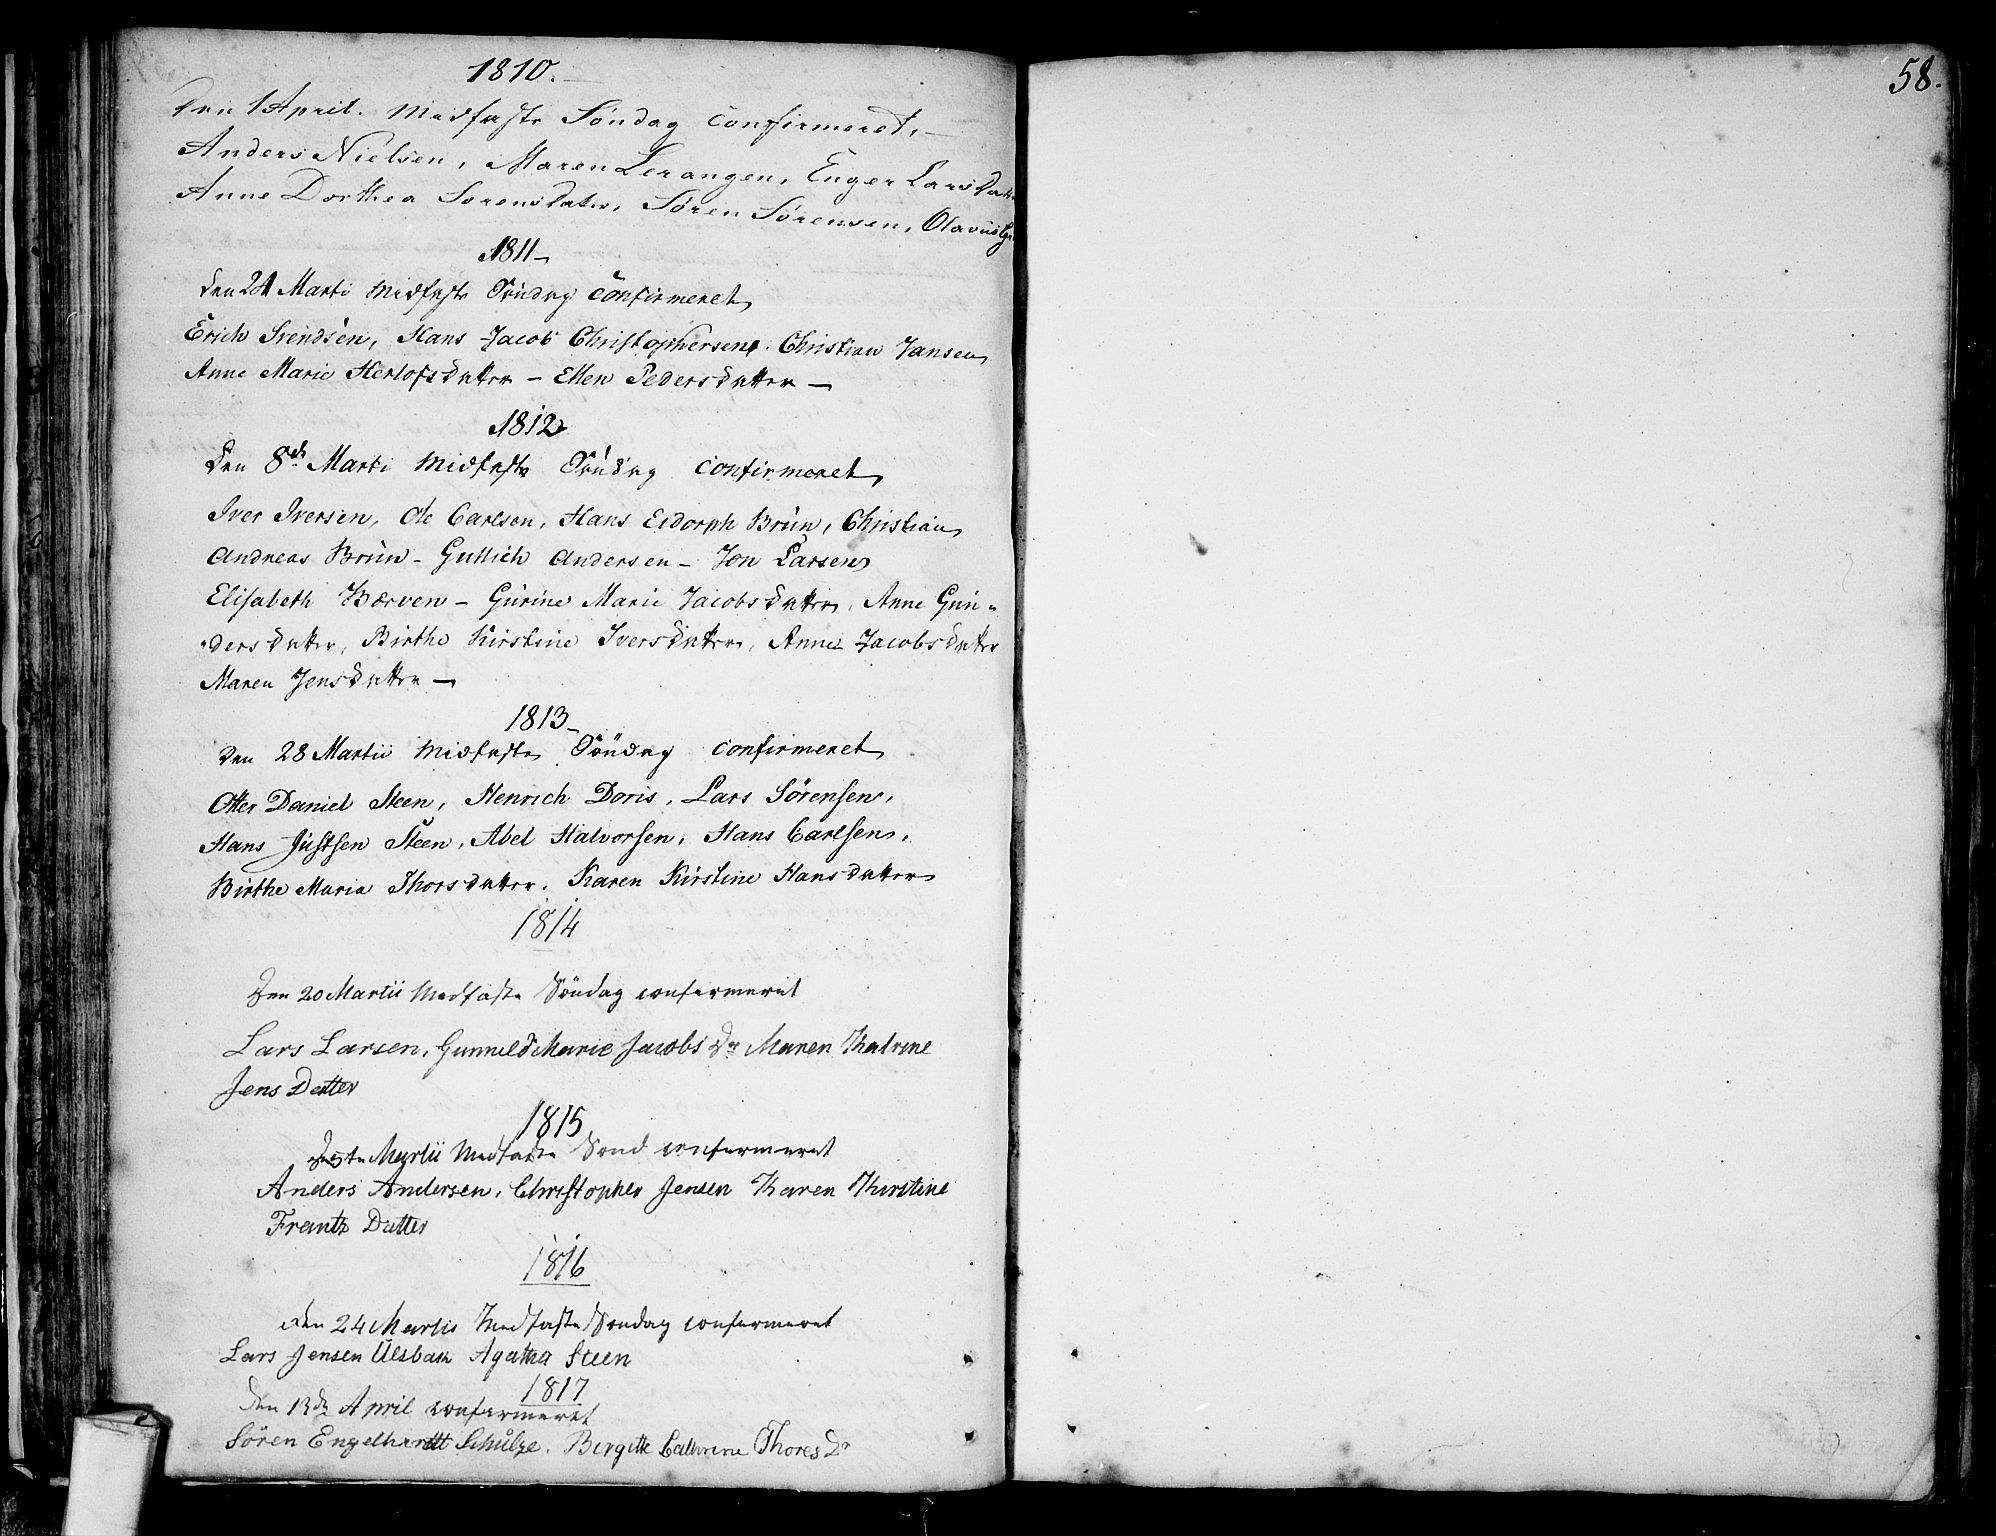 1810.
Den 1 April. Midfaste Søndag Confirmeret,
Anders Nielsen, Maren Lerangen, Enger Lars
Anne Dorthea Sorensdater, Søren Sørensen, Olavus
1811
den 24 Marti Midfaste Søndag Confirmeret
Erich Svendsen, Hans Jacob Christophersen, Christian Jansen
Anne Marie Herlofsdatter – Ellen Pedersdatter –
1812
den 8de Marti Midfaste Søndag confirmeret
Iver Iversen, Ole Carlsen, Hans Eidorph Brün, Christian
Andreas Brün – Gullich Andersen – Jon Larsen
Elisabeth Bærven – Gürine Marie Jacobsdatter, Anne Gun-
dersdatter, Birthe Kirstine Iversdatter, Anne Jacobsdatter
Maren Jensdatter –
1813
Den 28 Martii Midfaste Søndag confirmeret
Otter Daniel Steen, Henrich Doris, Lars Sørensen,
Hans Justsen Steen, Abel Halvorsen, Hans Carlsen,
Birthe Maria Thorsdatter, Karen Kirstine Hansdatter
1814
Den 20 Martii Midfaste Söndag confermeret
Lars Larsen, Gunneld Marie Jacobs Dr Maren Katrine
Jens Datter
1815
Martii Midfaste Sönd confermeret
Anders Andersen, Christopher Jensen Karen Kirstine
Frantz Datter
1816
den 24 Martii Midfaste Söndag confermeret
Lars Jensen Ulsbak Agatha Steen
1817
den 13de April confermeret
Sören Engelhardt Schulze, Birgitte Cathrine Thores Dr
58.